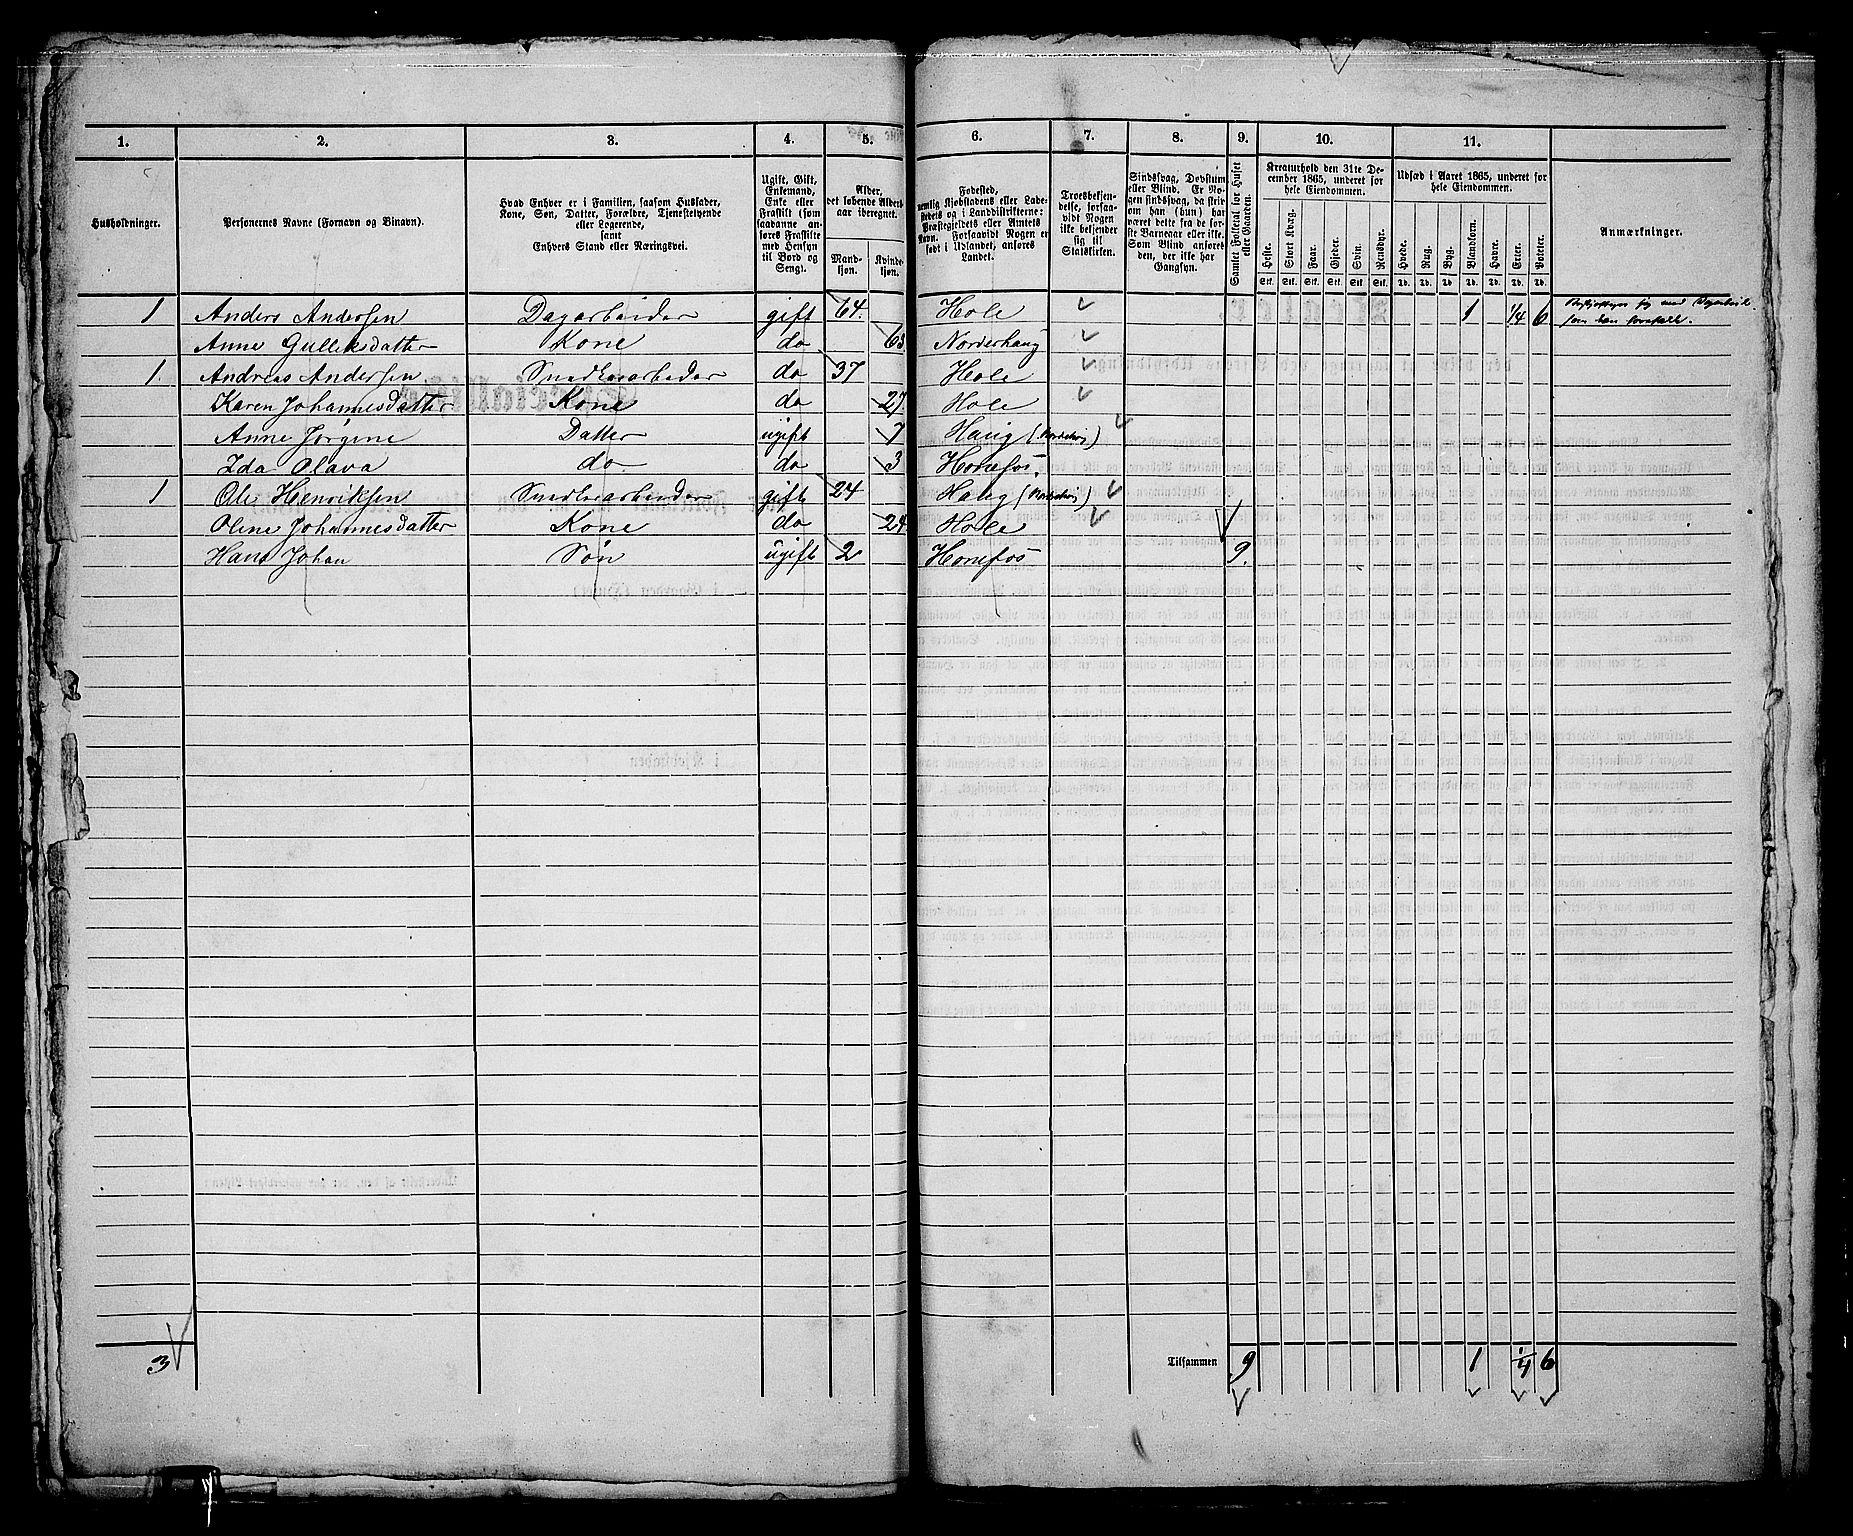 1. 2. 3. 4. 5. 6. 7. 8. 9. 10. 11.
Husholdninger.
Personernes Navne (Fornavn og Binavn).
Hvad Enhver er i Familien, saasom Husfader,
Kone, Søn, Datter, Forældre, Tjenestetyende
eller Logerende,
samt
Enhvers Stand eller Næringsvei.
Ugift, Gift,
Enkemand,
Enke eller
Fraskilt (som
saadanne an-
føres Fraskilte
med Hensyn
til Bord og
Seng).
Alder,
det løbende Alders-
aar iberegnet.
Mand-
kjøn.
Kvinde-
kjøn.
Fødested,
nemlig Kjøbstadens eller Lade-
stedets og i Landdistrikterne:
Præstegjeldets eller Amtets
Navn. Forsaavidt Nogen er
født i Udlandet, anføres
Landet.
Troesbekjen-
delse, forsaa-
vidt Nogen
ikke bekjender
sig til
Statskirken.
Sindssvag, Døvstum
eller Blind. Er No-
gen sindssvag, da skrives
om han (hun) har
været dette fra de før-
ste Barneaar eller ikke.
Som Blind anføres
den, der ikke har
Gangsyn.
Samlet Folketal for Huset
eller Gaarden.
Kreaturhold den 31te De-
cember 1865, underet for
hele Eiendommen.
Heste. Stort Kvæg. Faar. Gjeder. Svin. Rensdyr.
Stk. Stk. Stk. Stk. Stk. Stk.
Udsæd i Aaret 1865, underet for
hele Eiendommen.
Hvede. Rug. Byg. Blandkorn. Havre. Erter. Poteter.
Td. Td. Td. Td. Td. Td. Td.
Anmærkninger.
1 Anders Andersen Dagarbeider gift 64. Hole 1 1/4 6
Anne Gulleksdatter Kone do 63. Norderhaug
som han forefalde.
1. Andreas Andersen Snedkerarbeder do 37 Hole
Karen Johannesdatter Kone do 27. Hole
Anne Jørgine Datter ugift 7 Haug
Ida Olava do do 3 Honefos.
1 Ole Henriksen Snedkerarbeider gift 24 Haug
Oline Johannesdatter Kone do 24. Hole
Hans Johan Søn ugift 2 Honefos 9.
3 Tilsammen 9 1 1/4 6